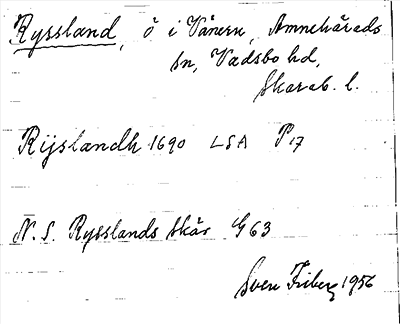 Ryssland, ö i Vänern, Amnehärads
sn, Vadsbo hd,
Skarab. l.
Rijslandh 1690 LSA P 17
N. S. Rysslands skär G 63
Sven Friberg 1956